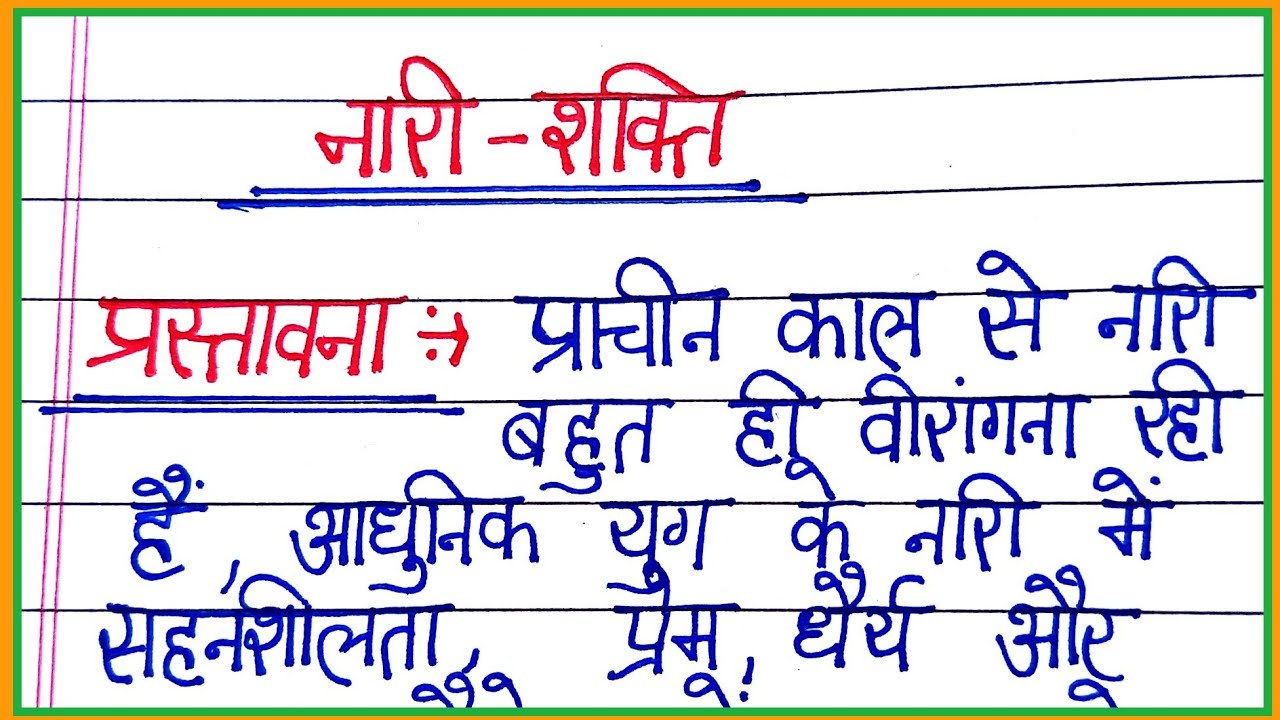 नारी - शक्ति
प्रस्तावना :→ प्राचीन काल से नारी
बहुत ही वीरांगना रही
हैं, आधुनिक युग के नारी में
सहनशीलता, प्रेम, धैर्य और